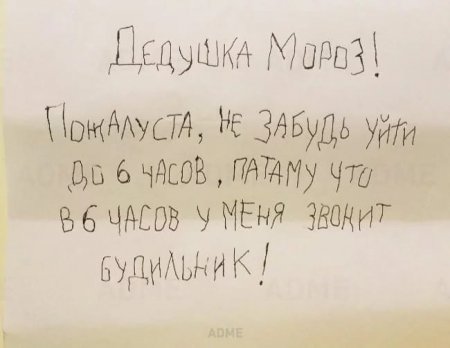 Дедушка Мороз!
Пожалуста, не забудь уйти
до 6 часов, патаму что
в 6 часов у меня звонит
будильник!
ADME